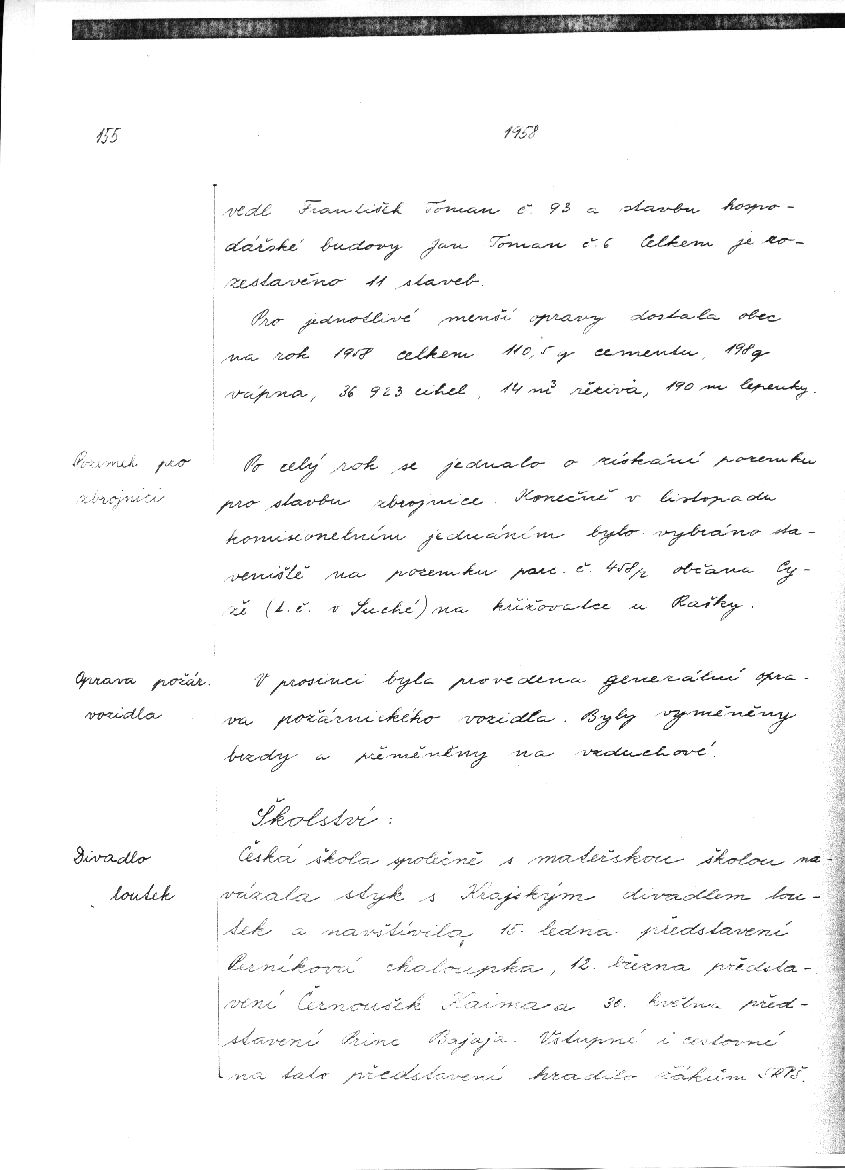 155
1958
vedl František Toman č. 93 a stavbu hospo-
dářské budovy Jan Toman č. 6 Celkem je ro-
zestavěno 11 staveb.
Pro jednotlivé menší opravy dostala obec
na rok 1958 celkem 110,5 q cementu, 198 q
vápna, 36 923 cihel, 14 m³ řeziva, 190 m lepenky.
Pozemek pro
zbrojnici
Po celý rok se jednalo o získání pozemku
pro stavbu zbrojnice. Konečně v listopadu
komisonelním jednáním bylo vybráno sta-
veniště na pozemku parc. č. 458/2 občana Cy-
že (t. č. v Suché) na křižovatce u Rašky.
Oprava požár.
vozidla
V prosinci byla provedena generální opra-
va požárnického vozidla. Byly vyměněny
brzdy a přeměněny na vzduchové.
Školství:
Divadlo
loutek
Česká škola společně s mateřskou školou na-
vázala styk s Krajským divadlem lou-
tek a navštívila, 15. ledna představení
Perníková chaloupka, 12. března předsta-
vení Černoušek Kaima a 30. května před-
stavení Princ Bajaja. Vstupné i cestovné
na tato představení hradilo žákům SRPŠ.